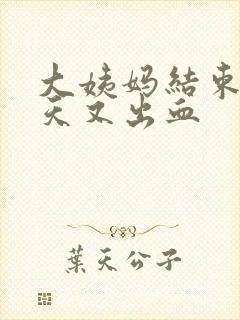 大姨妈结束
天又出血
葉天公子